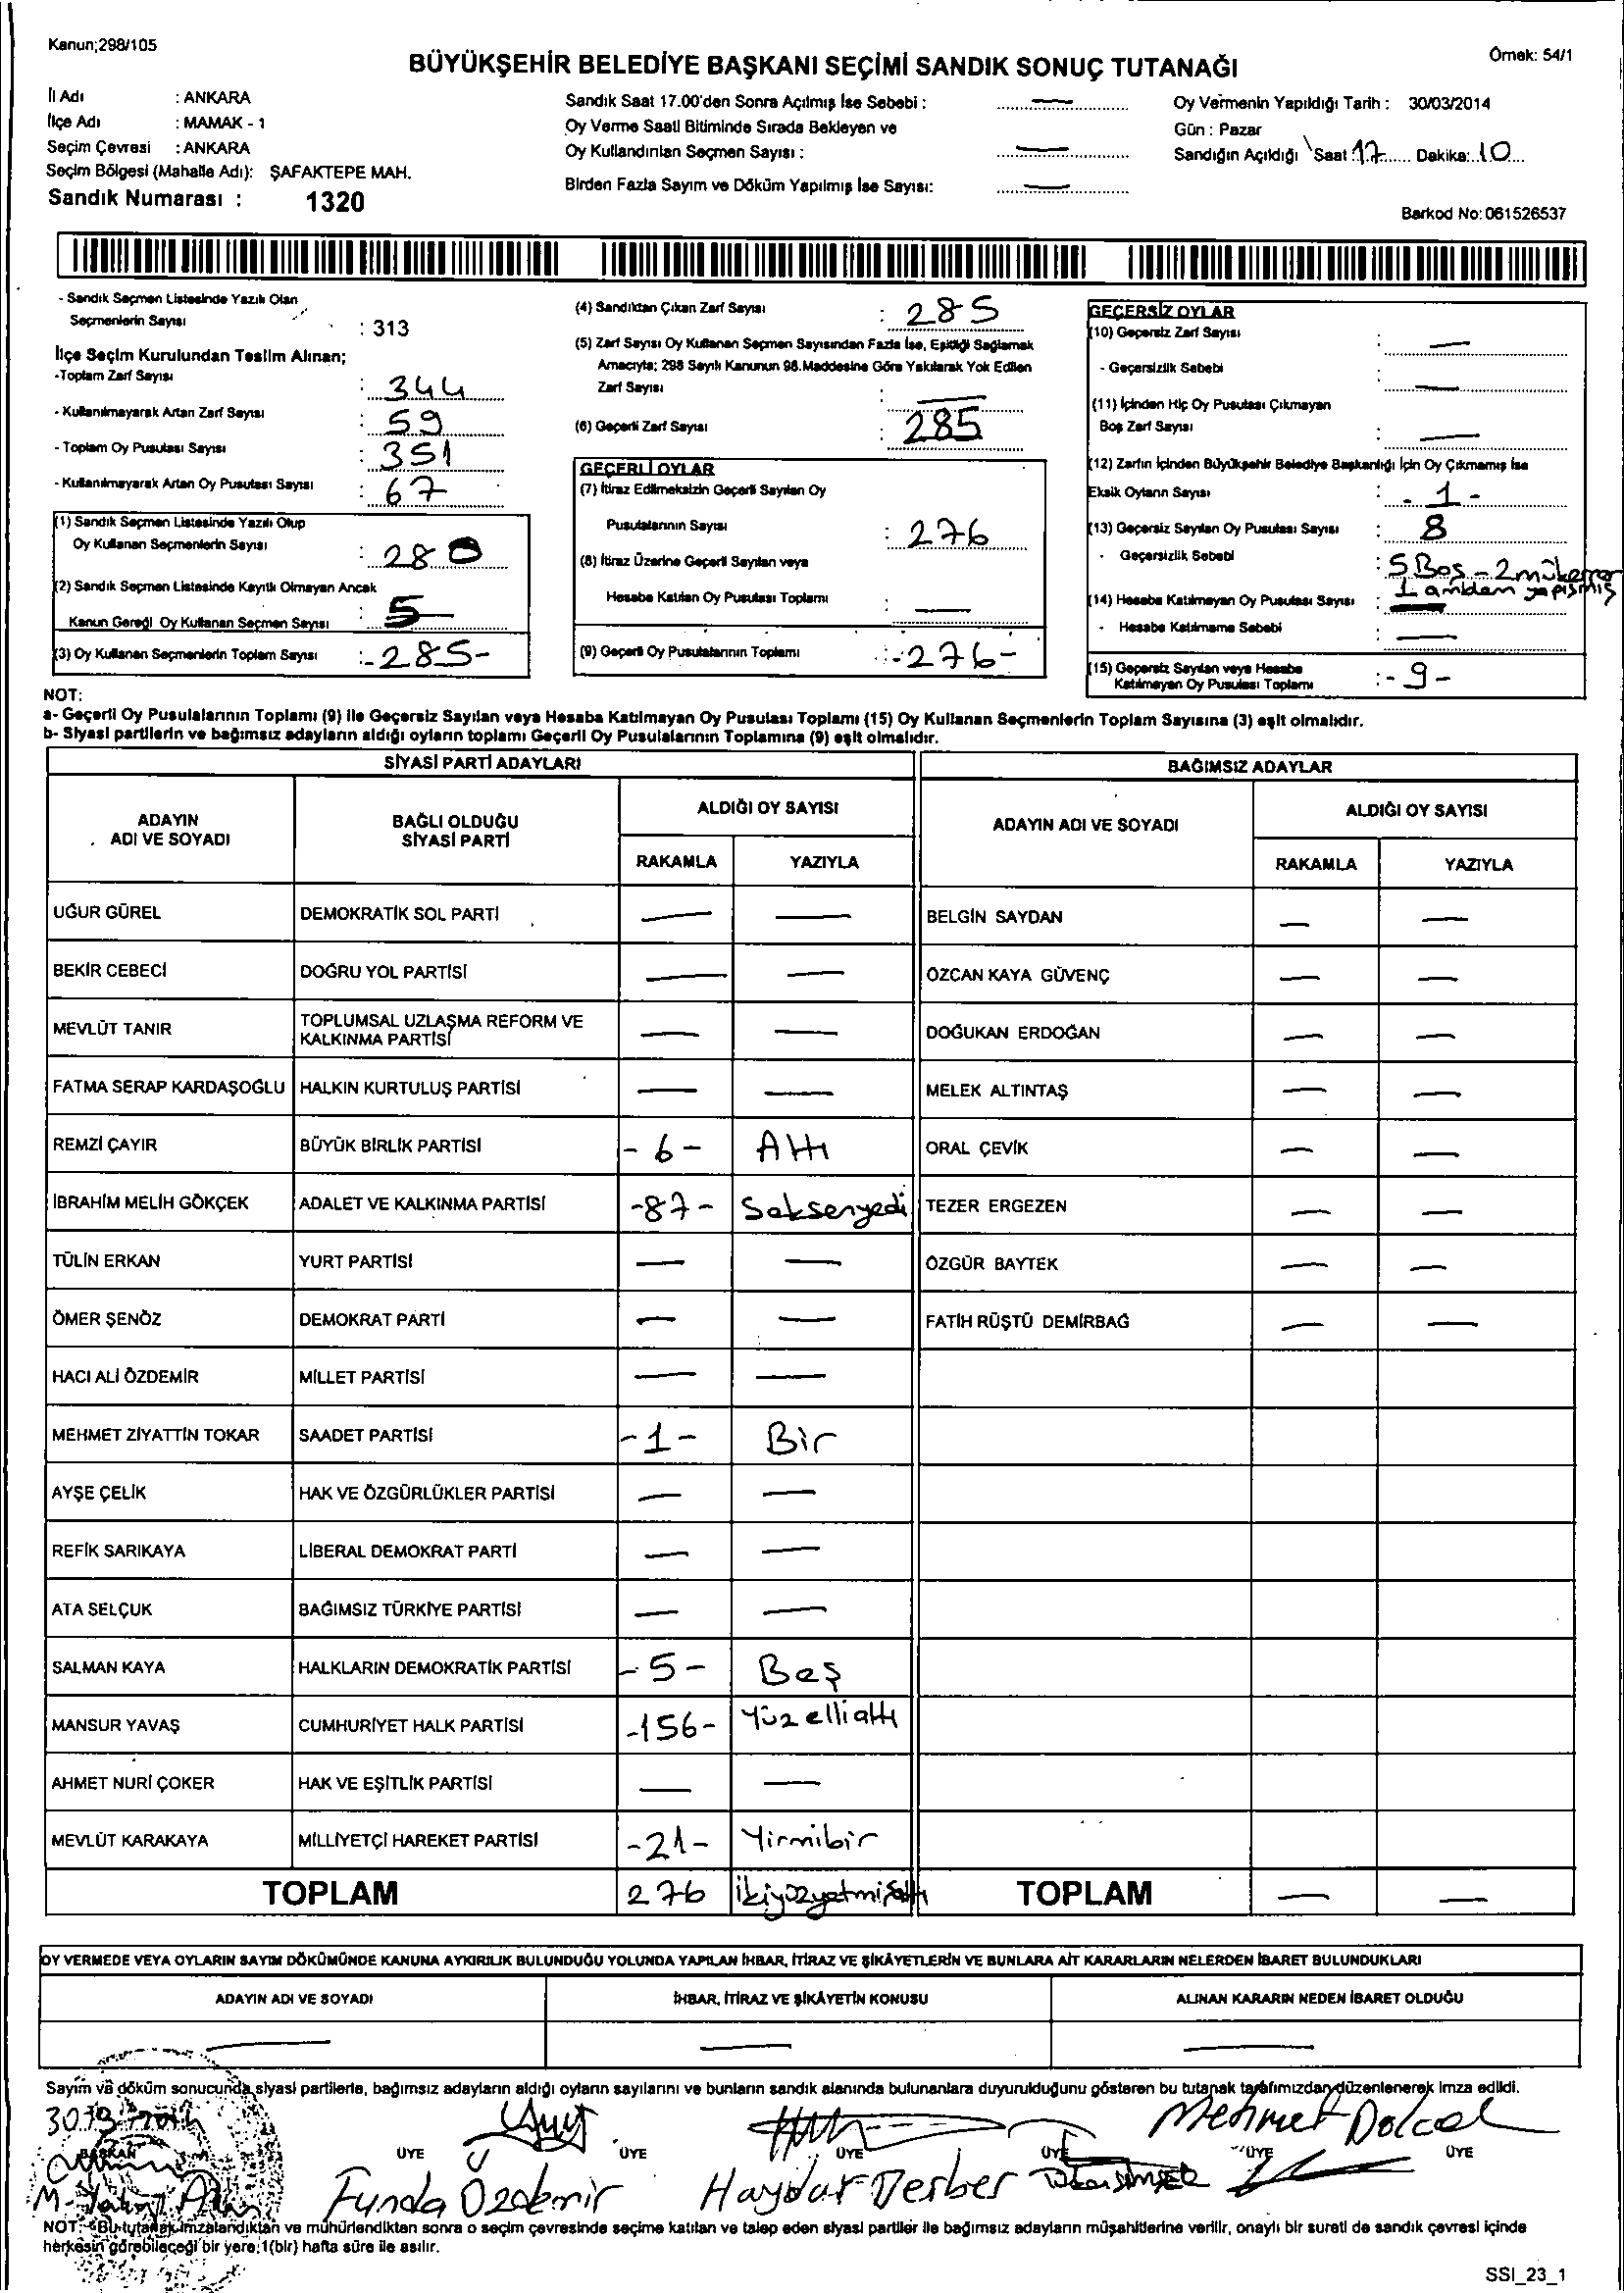 Kanun;298/105
Örnek: 54/1
BÜYÜKŞEHİR BELEDİYE BAŞKANI SEÇİMİ SANDIK SONUÇ TUTANAĞI
İl Adı : ANKARA
İlçe Adı : MAMAK - 1
Seçim Çevresi : ANKARA
Seçim Bölgesi (Mahalle Adı): ŞAFAKTEPE MAH.
Sandık Numarası : 1320
Sandık Saat 17.00'den Sonra Açılmış İse Sebebi : —
Oy Verme Saati Bitiminde Sırada Bekleyen ve
Oy Kullandırılan Seçmen Sayısı : —
Birden Fazla Sayım ve Döküm Yapılmış İse Sayısı: —
Oy Vermenin Yapıldığı Tarih : 30/03/2014
Gün : Pazar
Sandığın Açıldığı Saat :17 Dakika: 10
Barkod No: 061526537
- Sandık Seçmen Listesinde Yazılı Olan
Seçmenlerin Sayısı : 313
İlçe Seçim Kurulundan Teslim Alınan;
-Toplam Zarf Sayısı : 344
- Kullanılmayarak Artan Zarf Sayısı : 59
- Toplam Oy Pusulası Sayısı : 351
- Kullanılmayarak Artan Oy Pusulası Sayısı : 67
(1) Sandık Seçmen Listesinde Yazılı Olup
Oy Kullanan Seçmenlerin Sayısı : 280
(2) Sandık Seçmen Listesinde Kayıtlı Olmayan Ancak
Kanun Gereği Oy Kullanan Seçmen Sayısı : 5
(3) Oy Kullanan Seçmenlerin Toplam Sayısı :-285-
(4) Sandıktan Çıkan Zarf Sayısı : 285
(5) Zarf Sayısı Oy Kullanan Seçmen Sayısından Fazla İse, Eşitliği Sağlamak
Amacıyla; 298 Sayılı Kanunun 98.Maddesine Göre Yakılarak Yok Edilen
Zarf Sayısı : —
(6) Geçerli Zarf Sayısı : 285
GEÇERLİ OYLAR
(7) İtiraz Edilmeksizin Geçerli Sayılan Oy
Pusulalarının Sayısı : 276
(8) İtiraz Üzerine Geçerli Sayılan veya
Hesaba Katılan Oy Pusulası Toplamı : —
(9) Geçerli Oy Pusulalarının Toplamı :-276-
GEÇERSİZ OYLAR
(10) Geçersiz Zarf Sayısı : —
- Geçersizlik Sebebi : —
(11) İçinden Hiç Oy Pusulası Çıkmayan
Boş Zarf Sayısı : —
(12) Zarfın İçinden Büyükşehir Belediye Başkanlığı İçin Oy Çıkmamış İse
Eksik Oyların Sayısı : - 1 -
(13) Geçersiz Sayılan Oy Pusulası Sayısı : 8
- Geçersizlik Sebebi : 5 Boş - 2 mükerrer
1 arıkdan yapışmış
(14) Hesaba Katılmayan Oy Pusulası Sayısı : —
- Hesaba Katılmama Sebebi : —
(15) Geçersiz Sayılan veya Hesaba
Katılmayan Oy Pusulası Toplamı :- 9 -
NOT:
a- Geçerli Oy Pusulalarının Toplamı (9) ile Geçersiz Sayılan veya Hesaba Katılmayan Oy Pusulası Toplamı (15) Oy Kullanan Seçmenlerin Toplam Sayısına (3) eşit olmalıdır.
b- Siyasi partilerin ve bağımsız adayların aldığı oyların toplamı Geçerli Oy Pusulalarının Toplamına (9) eşit olmalıdır.
SİYASİ PARTİ ADAYLARI
ADAYIN ADI VE SOYADI BAĞLI OLDUĞU SİYASİ PARTİ ALDIĞI OY SAYISI
RAKAMLA YAZIYLA
UĞUR GÜREL DEMOKRATİK SOL PARTİ — —
BEKİR CEBECİ DOĞRU YOL PARTİSİ — —
MEVLÜT TANIR TOPLUMSAL UZLAŞMA REFORM VE KALKINMA PARTİSİ — —
FATMA SERAP KARDAŞOĞLU HALKIN KURTULUŞ PARTİSİ — —
REMZİ ÇAYIR BÜYÜK BİRLİK PARTİSİ - 6 - Altı
İBRAHİM MELİH GÖKÇEK ADALET VE KALKINMA PARTİSİ -87- Seksenyedi
TÜLİN ERKAN YURT PARTİSİ — —
ÖMER ŞENÖZ DEMOKRAT PARTİ — —
HACI ALİ ÖZDEMİR MİLLET PARTİSİ — —
MEHMET ZİYATTİN TOKAR SAADET PARTİSİ -1- Bir
AYŞE ÇELİK HAK VE ÖZGÜRLÜKLER PARTİSİ — —
REFİK SARIKAYA LİBERAL DEMOKRAT PARTİ — —
ATA SELÇUK BAĞIMSIZ TÜRKİYE PARTİSİ — —
SALMAN KAYA HALKLARIN DEMOKRATİK PARTİSİ - 5 - Beş
MANSUR YAVAŞ CUMHURİYET HALK PARTİSİ -156- Yüz elli altı
AHMET NURİ ÇOKER HAK VE EŞİTLİK PARTİSİ — —
MEVLÜT KARAKAYA MİLLİYETÇİ HAREKET PARTİSİ -21- Yirmibir
TOPLAM 276 ikiyüzyetmişaltı
BAĞIMSIZ ADAYLAR
ADAYIN ADI VE SOYADI ALDIĞI OY SAYISI
RAKAMLA YAZIYLA
BELGİN SAYDAN — —
ÖZCAN KAYA GÜVENÇ — —
DOĞUKAN ERDOĞAN — —
MELEK ALTINTAŞ — —
ORAL ÇEVİK — —
TEZER ERGEZEN — —
ÖZGÜR BAYTEK — —
FATİH RÜŞTÜ DEMİRBAĞ — —
TOPLAM — —
OY VERMEDE VEYA OYLARIN SAYIM DÖKÜMÜNDE KANUNA AYKIRILIK BULUNDUĞU YOLUNDA YAPILAN İHBAR, İTİRAZ VE ŞİKÂYETLERİN VE BUNLARA AİT KARARLARIN NELERDEN İBARET BULUNDUKLARI
ADAYIN ADI VE SOYADI İHBAR, İTİRAZ VE ŞİKÂYETİN KONUSU ALINAN KARARIN NEDEN İBARET OLDUĞU
— — —
Sayım ve döküm sonucunda siyasi partilerle, bağımsız adayların aldığı oyların sayılarını ve bunların sandık alanında bulunanlara duyurulduğunu gösteren bu tutanak tarafımızdan düzenlenerek imza edildi.
Mehmet
BAŞKAN ÜYE ÜYE ÜYE ÜYE ÜYE ÜYE
Funda Özdemir Haydar
NOT: Bu tutanak imzalandıktan ve mühürlendikten sonra o seçim çevresinde seçime katılan ve talep eden siyasi partiler ile bağımsız adayların müşahitlerine verilir, onaylı bir sureti de sandık çevresi içinde
herkesin görebileceği bir yere;1(bir) hafta süre ile asılır.
SSI_23_1